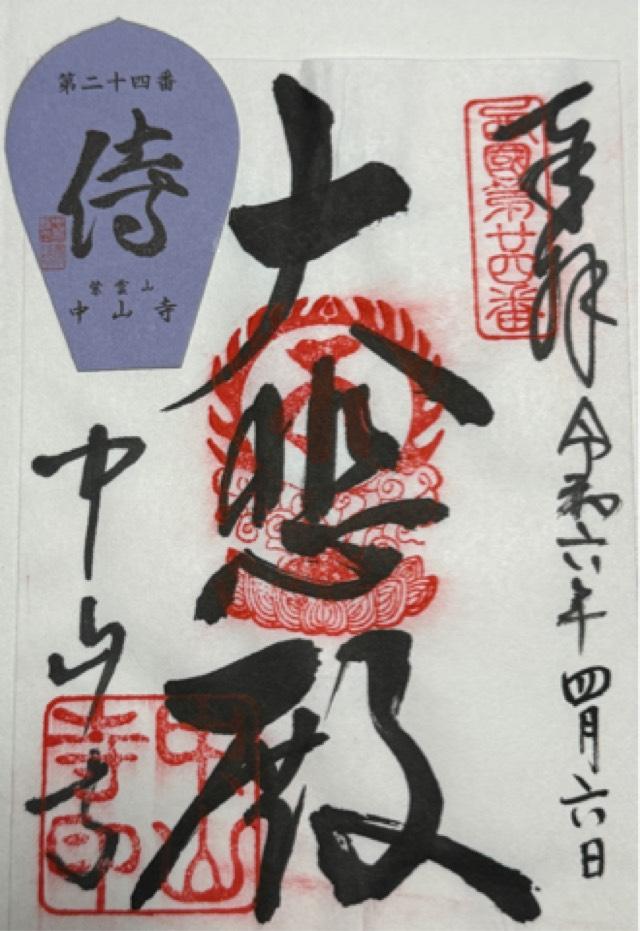 奉拝
令和六年四月六日
西國第廿四番
大悲殿
中山寺
中山寺印
第二十四番
紫雲山
中山寺